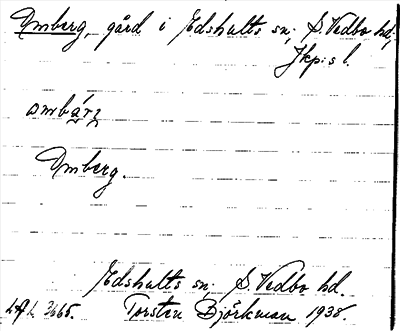 Omberg, gård i Edshults sn, S. Vedbo hd,
Jkp:s l.
ombárj
Omberg.
Edshults sn. S. Vedbo hd.
Torsten Björkman 1938